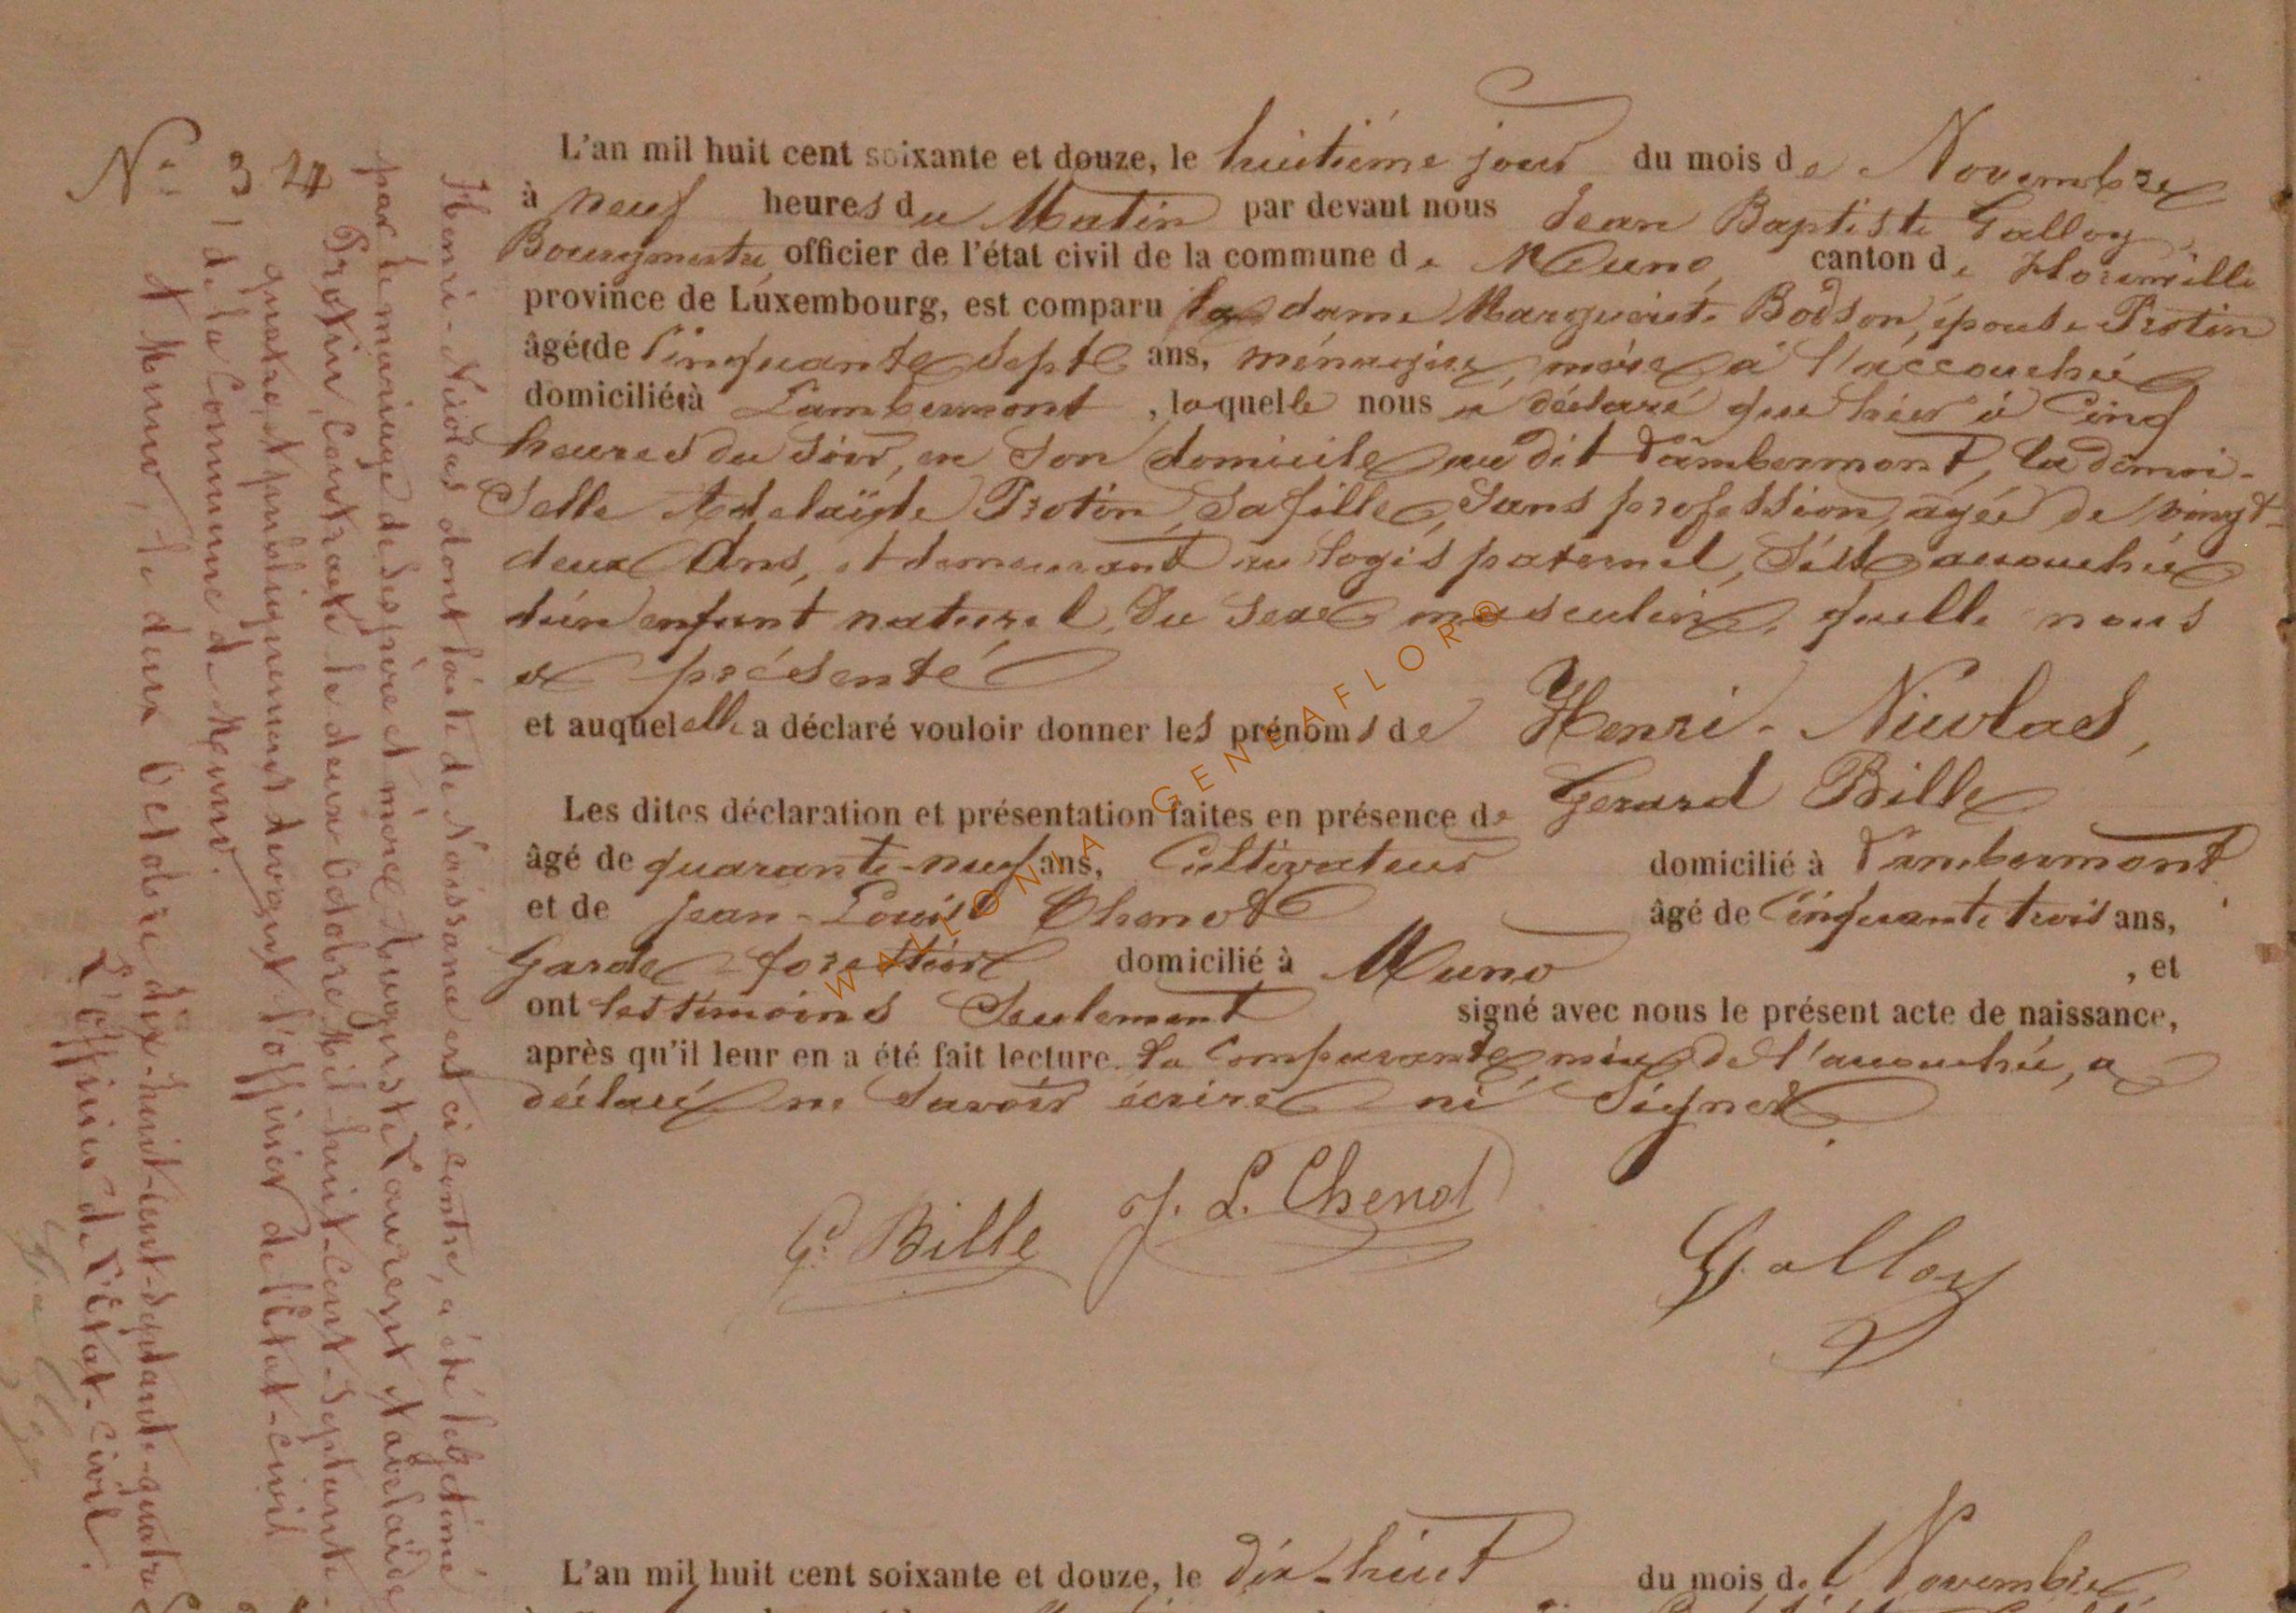 N° 34
L'an mil huit cent soixante et douze, le huitième jour du mois de Novembre
à neuf heures du Matin par devant nous Jean Baptiste Galloy
Bourgmestre, officier de l'état civil de la commune de Muno, canton de Florenville
province de Luxembourg, est comparu la dame Marguerite Bodson, épouse Protin
âgée de Cinquante sept ans, ménagère, mère à l'accouchée
domiciliée à Lambermont, laquelle nous a déclaré que hier à Cinq
heures du Soir, en Son domicile au dit Lambermont, la demoi-
Selle Adelaïde Protin, Sa fille, Sans profession, agée de vingt-
deux Ans, et demeurant au logis paternel, S'est accouchée
d'un enfant naturel, du Sexe masculin, quelle nous
a présenté
et auquel elle a déclaré vouloir donner les prénoms de Henri-Nicolas,
Les dites déclaration et présentation faites en présence de Gerard Bille
âgé de quarante-neuf ans, Cultivateur domicilié à Lambermont
et de Jean-Louis Chenot âgé de Cinquante trois ans,
Garde forestier domicilié à Muno, et
ont les témoins Seulement signé avec nous le présent acte de naissance,
après qu'il leur en a été fait lecture. La Comparante, mère de l'accouchée, a
déclaré ne Savoir écrire ni Signer.
Gd. Bille J. L. Chenot
Galloy
Henri-Nicolas dont l'acte de Naissance est ci contre, a été légitimé
par le mariage de ses père et mère Auguste Laurent et Adelaïde
Protin, Contracté le deux Octobre Mil-huit-Cent-Septante-
quatre, et publiquement devant l'officier de l'Etat-Civil
de la Commune de Muno.
A Muno, le deux Octobre dix-huit-Cent-Septante-quatre
L'officier de l'Etat-civil.
Galloy
WALLONIA GENEAFLOR©
L'an mil huit cent soixante et douze, le dix-huit du mois de Novembre